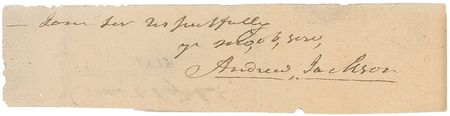 — I am sir respectfully
yr mo, ob, serv,
Andrew Jackson